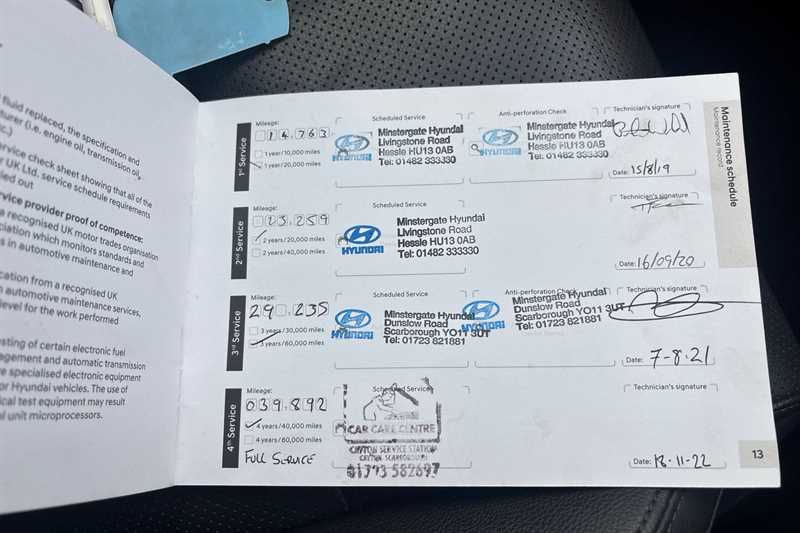 fluid replaced, the specification and
urer (i.e. engine oil, transmission oil,
c.)
rvice check sheet showing that all of the
UK Ltd. service schedule requirements
ed out
vice provider proof of competence:
a recognised UK motor trades organisation
ciation which monitors standards and
s in automotive maintenance and
cation from a recognised UK
n automotive maintenance services,
level for the work performed
sting of certain electronic fuel
agement and automatic transmission
e specialised electronic equipment
or Hyundai vehicles. The use of
ical test equipment may result
l unit microprocessors.
Maintenance schedule
Maintenance record
1st Service
Mileage:
14,763
1 year/10,000 miles
1 year/20,000 miles
Scheduled Service
HYUNDAI
Minstergate Hyundai
Livingstone Road
Hessle HU13 0AB
Tel: 01482 333330
Anti-perforation Check
HYUNDAI
Minstergate Hyundai
Livingstone Road
Hessle HU13 0AB
Tel: 01482 333330
Technician's signature
Date: 15/8/19
2nd Service
Mileage:
23,259
2 years/20,000 miles
2 years/40,000 miles
Scheduled Service
HYUNDAI
Minstergate Hyundai
Livingstone Road
Hessle HU13 0AB
Tel: 01482 333330
Technician's signature
Date: 16/09/20
3rd Service
Mileage:
29,235
3 years/30,000 miles
3 years/60,000 miles
Scheduled Service
HYUNDAI
Minstergate Hyundai
Dunslow Road
Scarborough YO11 3UT
Tel: 01723 821881
Anti-perforation Check
HYUNDAI
Minstergate Hyundai
Dunslow Road
Scarborough YO11 3UT
Tel: 01723 821881
Technician's signature
Date: 7-8-21
4th Service
Mileage:
039,892
4 years/40,000 miles
4 years/80,000 miles
FULL SERVICE
Scheduled Service
CAR CARE CENTRE
CAYTON SERVICE STATION
CAYTON SCARBOROUGH
01723 582697
Technician's signature
Date: 18-11-22
13